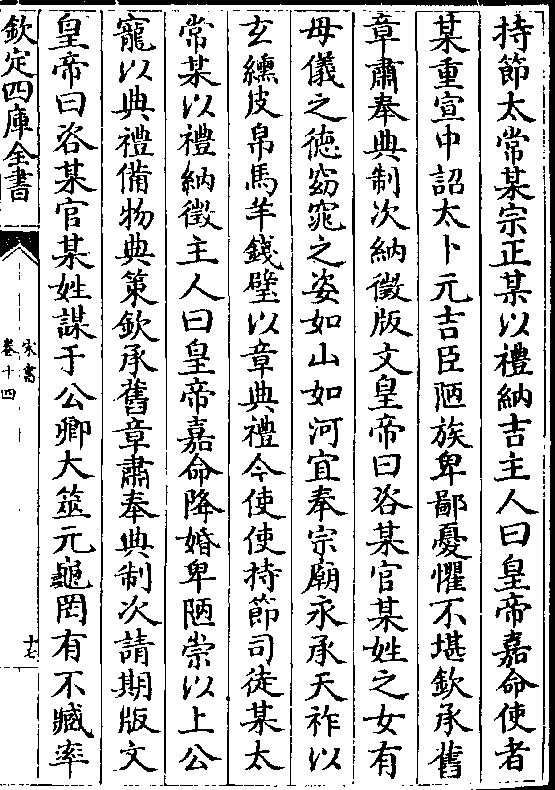 持節太常某宗正某以禮納吉主人曰皇帝嘉命使者
某重宣中詔太卜元吉臣陋族卑鄙憂懼不堪欽承舊
章肅奉典制次納徵版文皇帝曰咨某官某姓之女有
母儀之徳窈窕之姿如山如河宜奉宗廟永承天祚以
玄纁皮帛馬羊錢璧以章典禮今使使持節司徒某太
常某以禮納徵主人曰皇帝嘉命降婚卑陋崇以上公
寵以典禮備物典策欽承舊章肅奉典制次請期版文
皇帝曰咨某官某姓謀于公卿大筮元龜罔有不臧率
欽定四庫全書
宋書
卷十四
十七